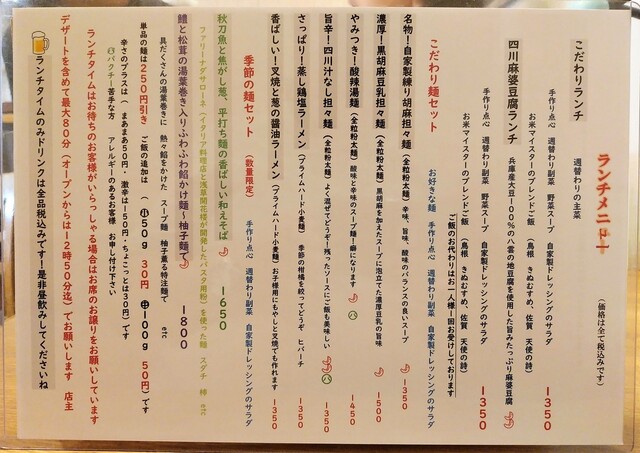 ランチメニュー
（価格は全て税込みです）
こだわりランチ
週替わりの主菜
手作り点心　週替わり副菜　野菜スープ　自家製ドレッシングのサラダ
お米マイスターのブレンドご飯　（島根　きぬむすめ、佐賀　天使の詩）
1350
四川麻婆豆腐ランチ　兵庫産大豆100%の八雲の地豆腐を使用した旨みたっぷり麻婆豆腐
手作り点心　週替わり副菜　野菜スープ　自家製ドレッシングのサラダ
お米マイスターのブレンドご飯　（島根　きぬむすめ、佐賀　天使の詩）
1350
ご飯のお代わりはお一人様一回お受けしております
こだわり麺セット　お好きな麺　手作り点心　週替わり副菜　自家製ドレッシングのサラダ
名物！自家製練り胡麻担々麺（全粒粉太麺）　辛味、旨味、酸味のバランスの良いスープ　1350
濃厚！黒胡麻豆乳担々麺（全粒粉太麺）　黒胡麻を加えたスープに泡立てた濃厚豆乳の旨味　1500
やみつき！酸辣湯麺（全粒粉太麺）　酸味と辛味のスープ麺！癖になります　パ　1450
旨辛！四川汁なし担々麺（全粒粉太麺）　よく混ぜてどうぞ！残ったソースにご飯も美味しい　パ　1350
さっぱり！蒸し鶏塩ラーメン（プライムハード小麦麺）　季節の柑橘を絞ってどうぞ　ヒバーチ　1350
香ばしい！叉焼と葱の醤油ラーメン（プライムハード小麦麺）　お子様用にもやしと叉焼でも作れます　1350
季節の麺セット（数量限定）　手作り点心　週替わり副菜　自家製ドレッシングのサラダ
秋刀魚と焦がし葱、平打ち麺の香ばしい和えそば　1650
ファリーナダサローネ（イタリア料理店と浅草開花楼が開発したパスタ用粉）を使った麺　スダチ　柿　etc
鱧と松茸の湯葉巻き入りふわふわ餡かけ麺～柚子麺で　1800
具だくさんの湯葉巻きに　熱々餡をかけた　スープ麺　ちょい柚子薫る特注麺で　etc
単品の麺は250円引き　ご飯の追加は（小50g　30円　中100g　50円）です
辛さのプラスは（まあまあ50円・激辛は150円　ちょこっとは30円）です
パ パクチー苦手な方　アレルギーのあるお客様　お申し付け下さい
ランチタイムはお待ちのお客様がいらっしゃる場合はお席のお譲りをお願いしています
デザートを含めて最大80分（オープンからは12時50分迄）でお願いします　店主
ランチタイムのみドリンクは全品税込みです！是非昼飲みしてくださいね